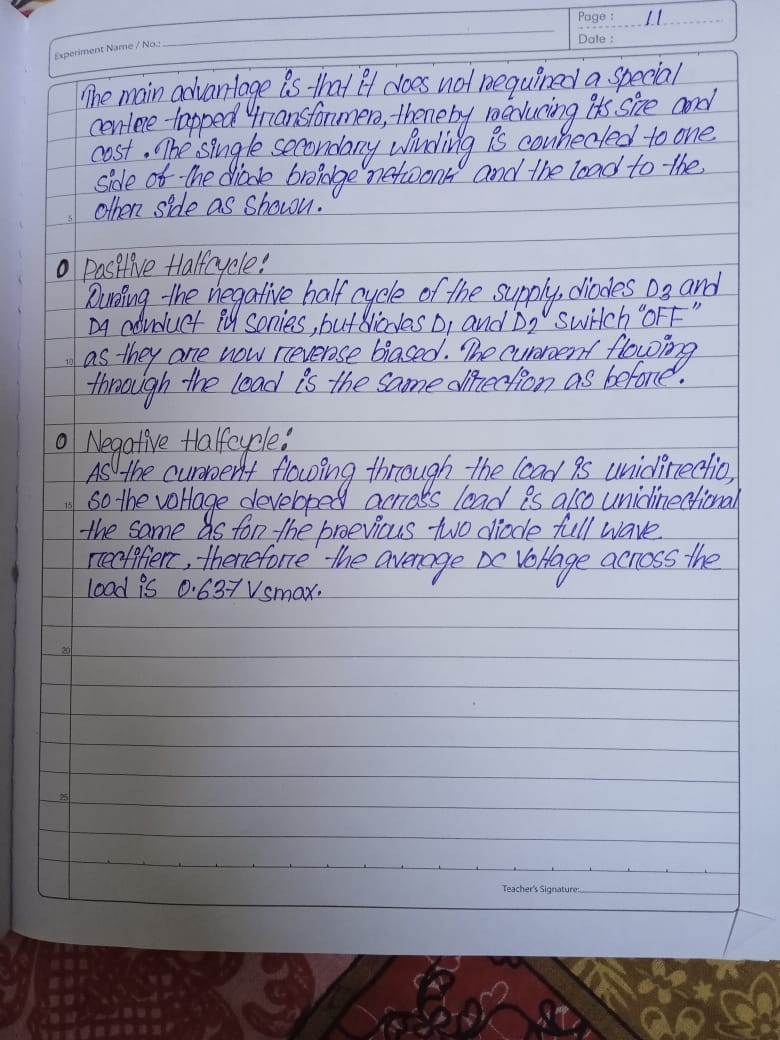 Page : 11
Experiment Name / No.:
Date :
The main advantage is that it does not required a special
centre tapped transformer, thereby reducing its size and
cost. The single secondary winding is connected to one
side of the diode braidge network and the load to the
5 other side as shown.
0 Positive Halfcycle:
During the negative half cycle of the supply, diodes D3 and
D4 conduct in series, but diodes D1 and D2 switch "OFF"
10 as they are now reverse biased. The current flowing
through the load is the same direction as before.
0 Negative Halfcycle:
As the current flowing through the load is unidirectio,
15 so the voltage developed across load is also unidirectional
the same as for the previous two diode full wave
rectifier, therefore the average DC voltage across the
load is 0.637 Vsmax.
20
25
Teacher's Signature: